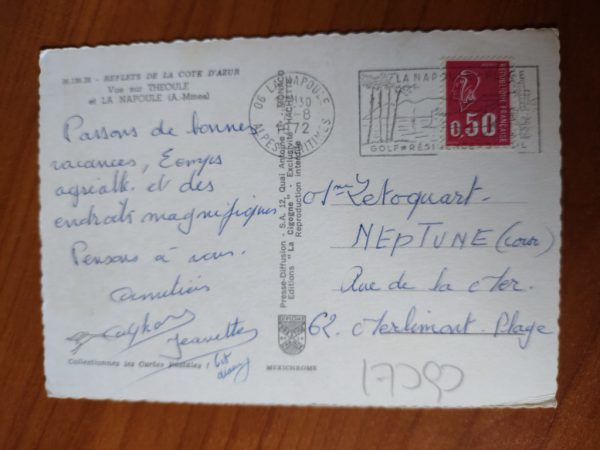 REFLETS DE LA COTE D'AZUR
Vue sur THEOULE
et LA NAPOULE (A.-Mmes)
Passons de bonnes
vacances, Temps
agréable et des
endroits magnifiques
Pensons à vous.
Amitiés
Jeannette
Collectionnez les Cartes Postales !
Presse-Diffusion - S.A. 12, Quai Antoine 1er - MONACO
Editions "La Cigogne" - Exclusivité HACHETTE
Reproduction interdite
MEXICHROME
06 LA NAPOULE
ALPES MARITIMES
30
-8
72
LA NAP
GOLF
REPUBLIQUE FRANÇAISE
0,50
Letoquart
NEPTUNE (cour)
Rue de la Mer
62. Merlimont. Plage